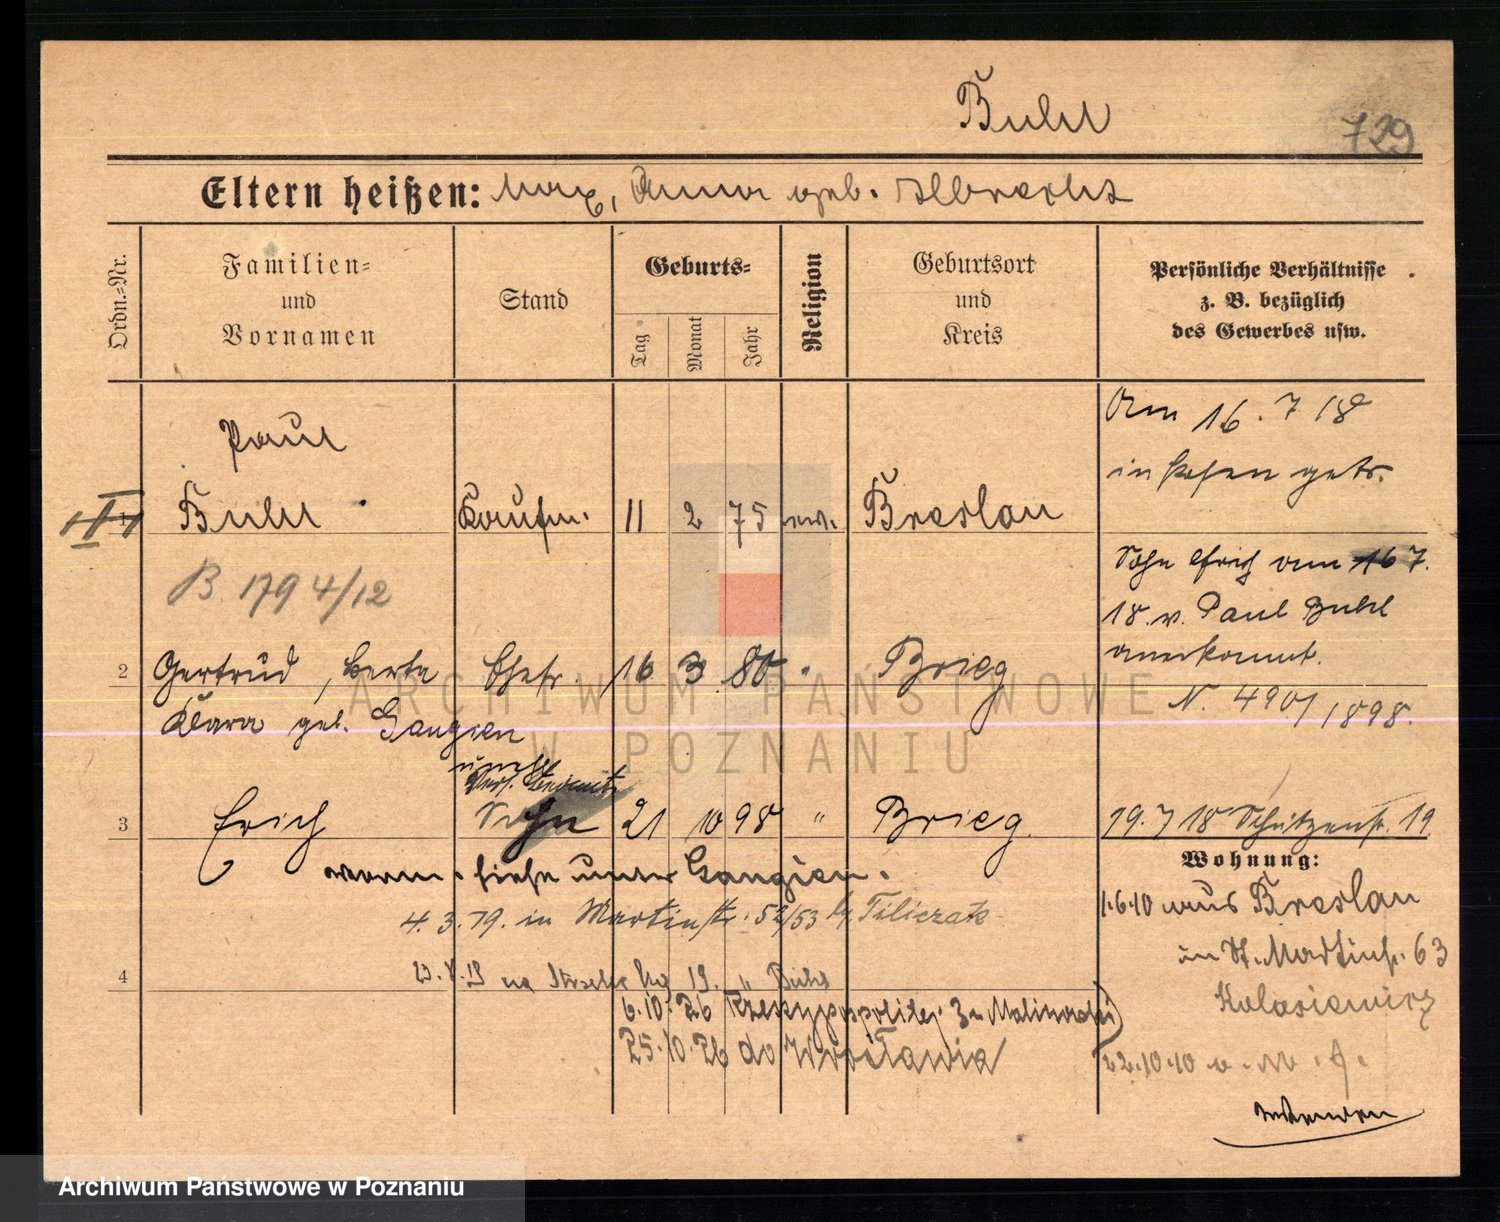 Buhl
729
Eltern heißen: Max, Anna geb. Albrecht
Ordn.-Nr.
Familien- und Vornamen
Stand
Geburts-
Tag
Monat
Jahr
Religion
Geburtsort und Kreis
Persönliche Verhältnisse z. B. bezüglich des Gewerbes usw.
Paul
Buhl Kaufm. 11 2 75 ev. Breslau
Am 16. 7 18
in Posen getr.
B. 1794/12
Sohn Erich am 16 7.
18. v. Paul Buhl
anerkannt.
N. 4901/1898.
2 Gertrud, Berta Ehefr. 16 3 80 " Brieg
Klara geb. Gangien
3 Erich Sohn 21 10 98 " Brieg
19. 7 18 Schützenstr. 19
vorm. siehe unter Gangien.
4. 3. 19. in Martinstr. 52/53
4
6. 10. 26 Rzeczypospolitej 3
25. 10. 26 do Wrocławia
Wohnung:
1.6.10 aus Breslau
in St. Martinstr. 63
Kolasiewicz
22.10.10
ARCHIWUM PAŃSTWOWE
W POZNANIU
Archiwum Państwowe w Poznaniu